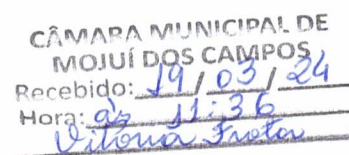 CÂMARA MUNICIPAL DE
MOJUÍ DOS CAMPOS
Recebido: 19 / 03 / 24
Hora: às 11:36
Vitória Frota